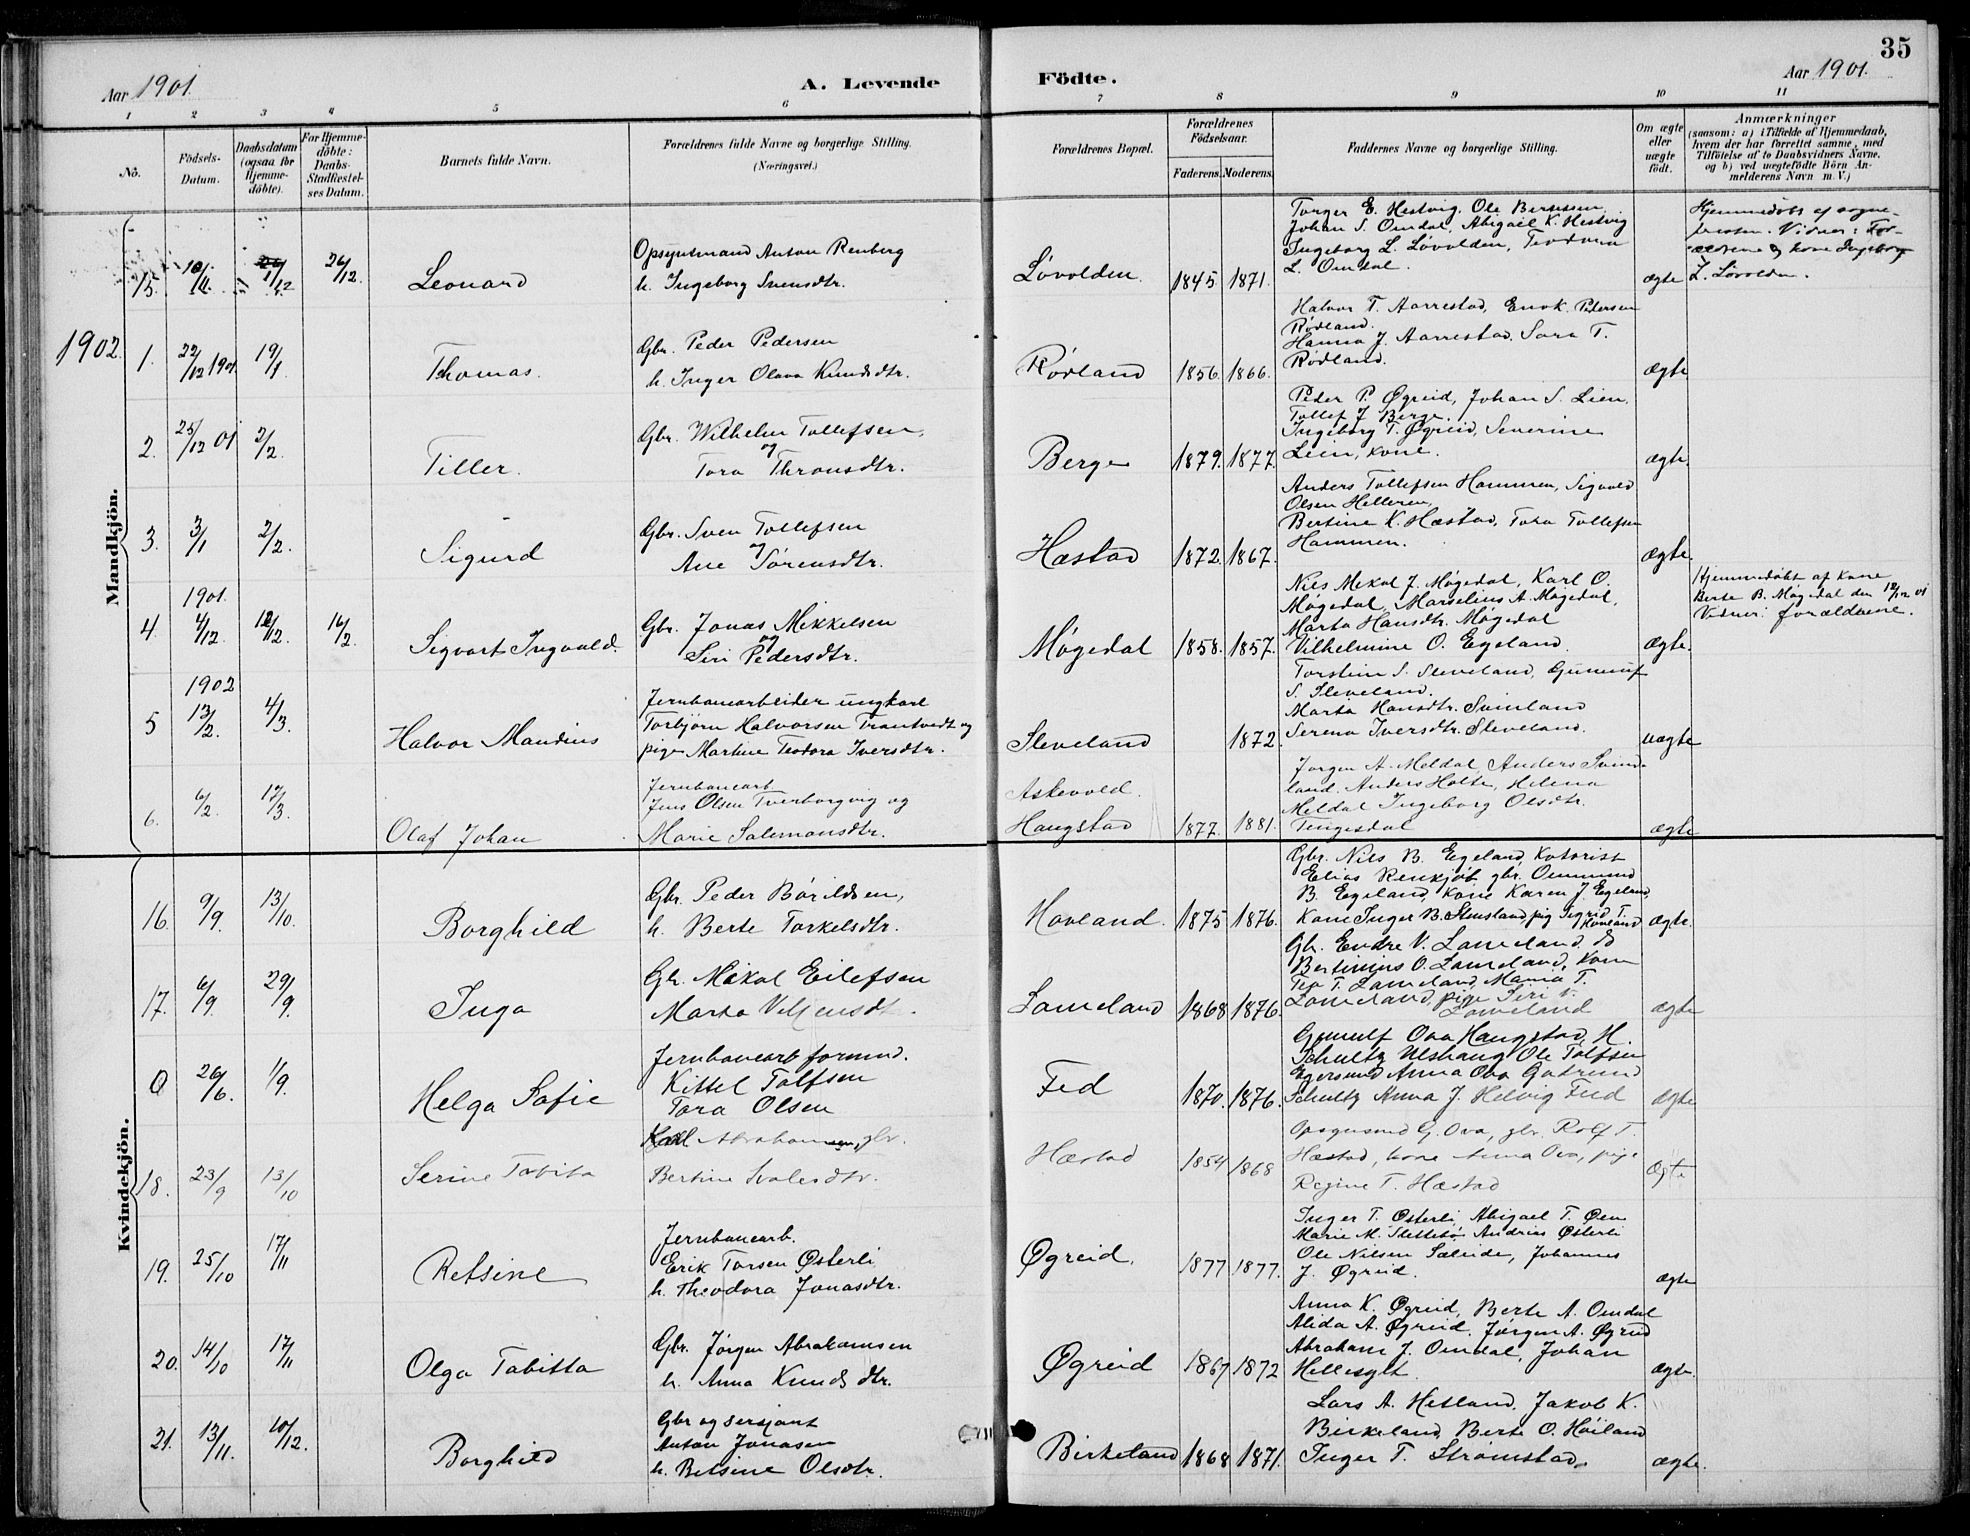 35
Aar 1901.
A. Levende
Födte.
Aar 1901.
1 2 3 4 5 6 7 8 9 10 11
No.
Födsels-Datum.
Daabsdatum (ogsaa for Hjemme-döbte).
For Hjemme-döbte: Daabs-Stadfæstel-ses Datum.
Barnets fulde Navn.
Forældrenes fulde Navne og borgerlige Stilling. (Næringsvei.)
Forældrenes Bopæl.
Forældrenes Födselsaar.
Faderens. Moderens.
Faddernes Navne og borgerlige Stilling.
Om ægte eller uægte födt.
Anmærkninger
(saasom: a) i Tilfælde af Hjemmedaab, hvem der har forrettet samme, med Tilföielse af to Daabsvidners Navne, og b) ved uægtefödte Börn An-melderens Navn m. V.)
Mandkjön.
15. 26/12 Leonard
Opsynsmand Anton Renberg
h. Ingeborg Svensdtr.
Løvolden 1845. 1871.
Torger E. Hestvig. Ole Berntsen
Johan S. Omdal, Abigael K. Hestvig
Ingeborg L. Løvolden, Teodora
L. Omdal.
ægte
Hjemmedøbt af sogne-
presten. Vidner: For-
ældrene og kone Ingeborg
L. Løvolden.
1902. 1. 22/12 1901 19/1 Thomas.
Gbr. Peder Pedersen
h. Inger Olava Knudsdtr.
Rødland 1856. 1866.
Halvor T. Aarrestad, Enok Pedersen
Rødland.
Hanna J. Aarrestad. Sara T.
Rødland.
ægte
2. 25/12 01 2/2. Tiller.
Gbr. Wilhelm Tollefsen,
og
Tora Thronsdtr.
Berge 1879. 1877.
Peder P. Øgreid, Johan S. Lien,
Tollef J. Berge.
Ingeborg T. Øgreid, Severine
Lein, kone.
ægte.
3. 3/1 2/2. Sigurd
Gbr. Sven Tollefsen
og
Ane Sørensdtr.
Hæstad 1872. 1867.
Anders Tollefsen Hammen, Sigvald
Olsen Helleren,
Bertine K. Hæstad, Tora Tollefsen
Hammen.
ægte.
1901.
4. 4/12. 16/2. Sigvart Ingvald.
Gbr. Jonas Mikkelsen
og
Siri Pedersdtr.
Møgedal 1858. 1857.
Nils Mekal J. Møgedal, Karl O.
Møgedal, Marselius A. Møgedal,
Marta Hansdtr. Møgedal
Vilhelmine O. Egeland.
ægte.
Hjemmedøbt af kone
Berte B. Møgedal den 12/12 01
Vidner: forældrene.
1902
5 13/2. 4/3. Halvor Mandius
Jernbanearbeider ungkarl
Torbjørn Halvorsen Trantvedt og
pige Martine Teodora Iversdtr.
Sleveland 1872.
Torstein S. Sleveland, Gunnuf
S. Sleveland.
Marta Hansdtr. Svinland
Serena Iversdtr. Sleveland.
uægte
6. 6/2. 17/3. Olaf Johan
Jernbanearb
Jens Olsen Tverborgvig og
Marie Salemonsdtr.
Askevold.
Haugstad 1877. 1881.
Jørgen A. Meldal, Anders Svind-
land. Anders Holte, Helena
Meldal Ingeborg Olsdtr.
Tengesdal
ægte
Kvindekjön.
16. 9/9. 13/10. Borghild
Gbr. Peder Børildsen,
h. Berte Torkelsdtr.
Hovland. 1875 1876.
Gbr. Nils B. Egeland, Kotorist
Elias Renkjøb gbr. Ommund
B. Egeland, kone Karen J. Egeland,
Kone Inger B. Stensland pig Sigrid T.
Hovland
ægte.
17. 6/9. 29/9. Inga
Gbr. Mekal Eilefsen
Marta Veljensdtr.
Lomeland 1868 1876.
Gbr. Endre V. Lomeland. do
Bertinius O. Lomeland, Kone
Tea T. Lomeland, Maria T.
Lomeland, pige Siri V.
Lomeland
ægte
0 26/6. 1/9. Helga Sofie
Jernbanearb formnd.
Kittel Tolfsen
Tora Olsen
Fed 1870. 1876.
Gunnulf Ova Haugstad, H.
Schultz Ulshaug Ole Tolfsen
Egersund Anna Ova Gudrund
Schultz Anna J. Helvig Fed
ægte
18. 23/9 13/10 Serine Tabita
Karl Abrahamsen, gbr.
Bertine Svalesdtr.
Hæstad 1854 1868
Opsynsmd G. Ova, gbr. Rolf T.
Hæstad, kone Anna Ova, pige
Regine T. Hæstad
ægte
19. 25/10 17/11 Retsine
Jernbanearb.
Erik Torsen Østerli
h. Theodora Jonasdtr.
Øgreid. 1877 1877.
Inger T. Østerli, Abigael T. Øen
Marie M. Slettebø Andrias Østerli
Ole Nilsen Sæleide, Johannes
J. Øgreid.
ægte
20. 14/10 17/11 Olga Tabitta
Gbr. Jørgen Abrahamsen
h. Anna Knudsdtr.
Øgreid 1867 1872
Anna K. Øgreid, Berte A. Omdal
Alida A. Øgreid, Jørgen A. Øgreid
Abraham J. Omdal, Johan
Hellesylt.
ægte.
21. 13/11. 10/12. Borghild
Gbr og sersjant
Anton Jonasen
h. Betsine Olsdtr.
Birkeland 1868 1871.
Lars A. Hetland. Jakob K.
Birkeland Berte O. Høiland
Inger T. Strømstad.
ægte.